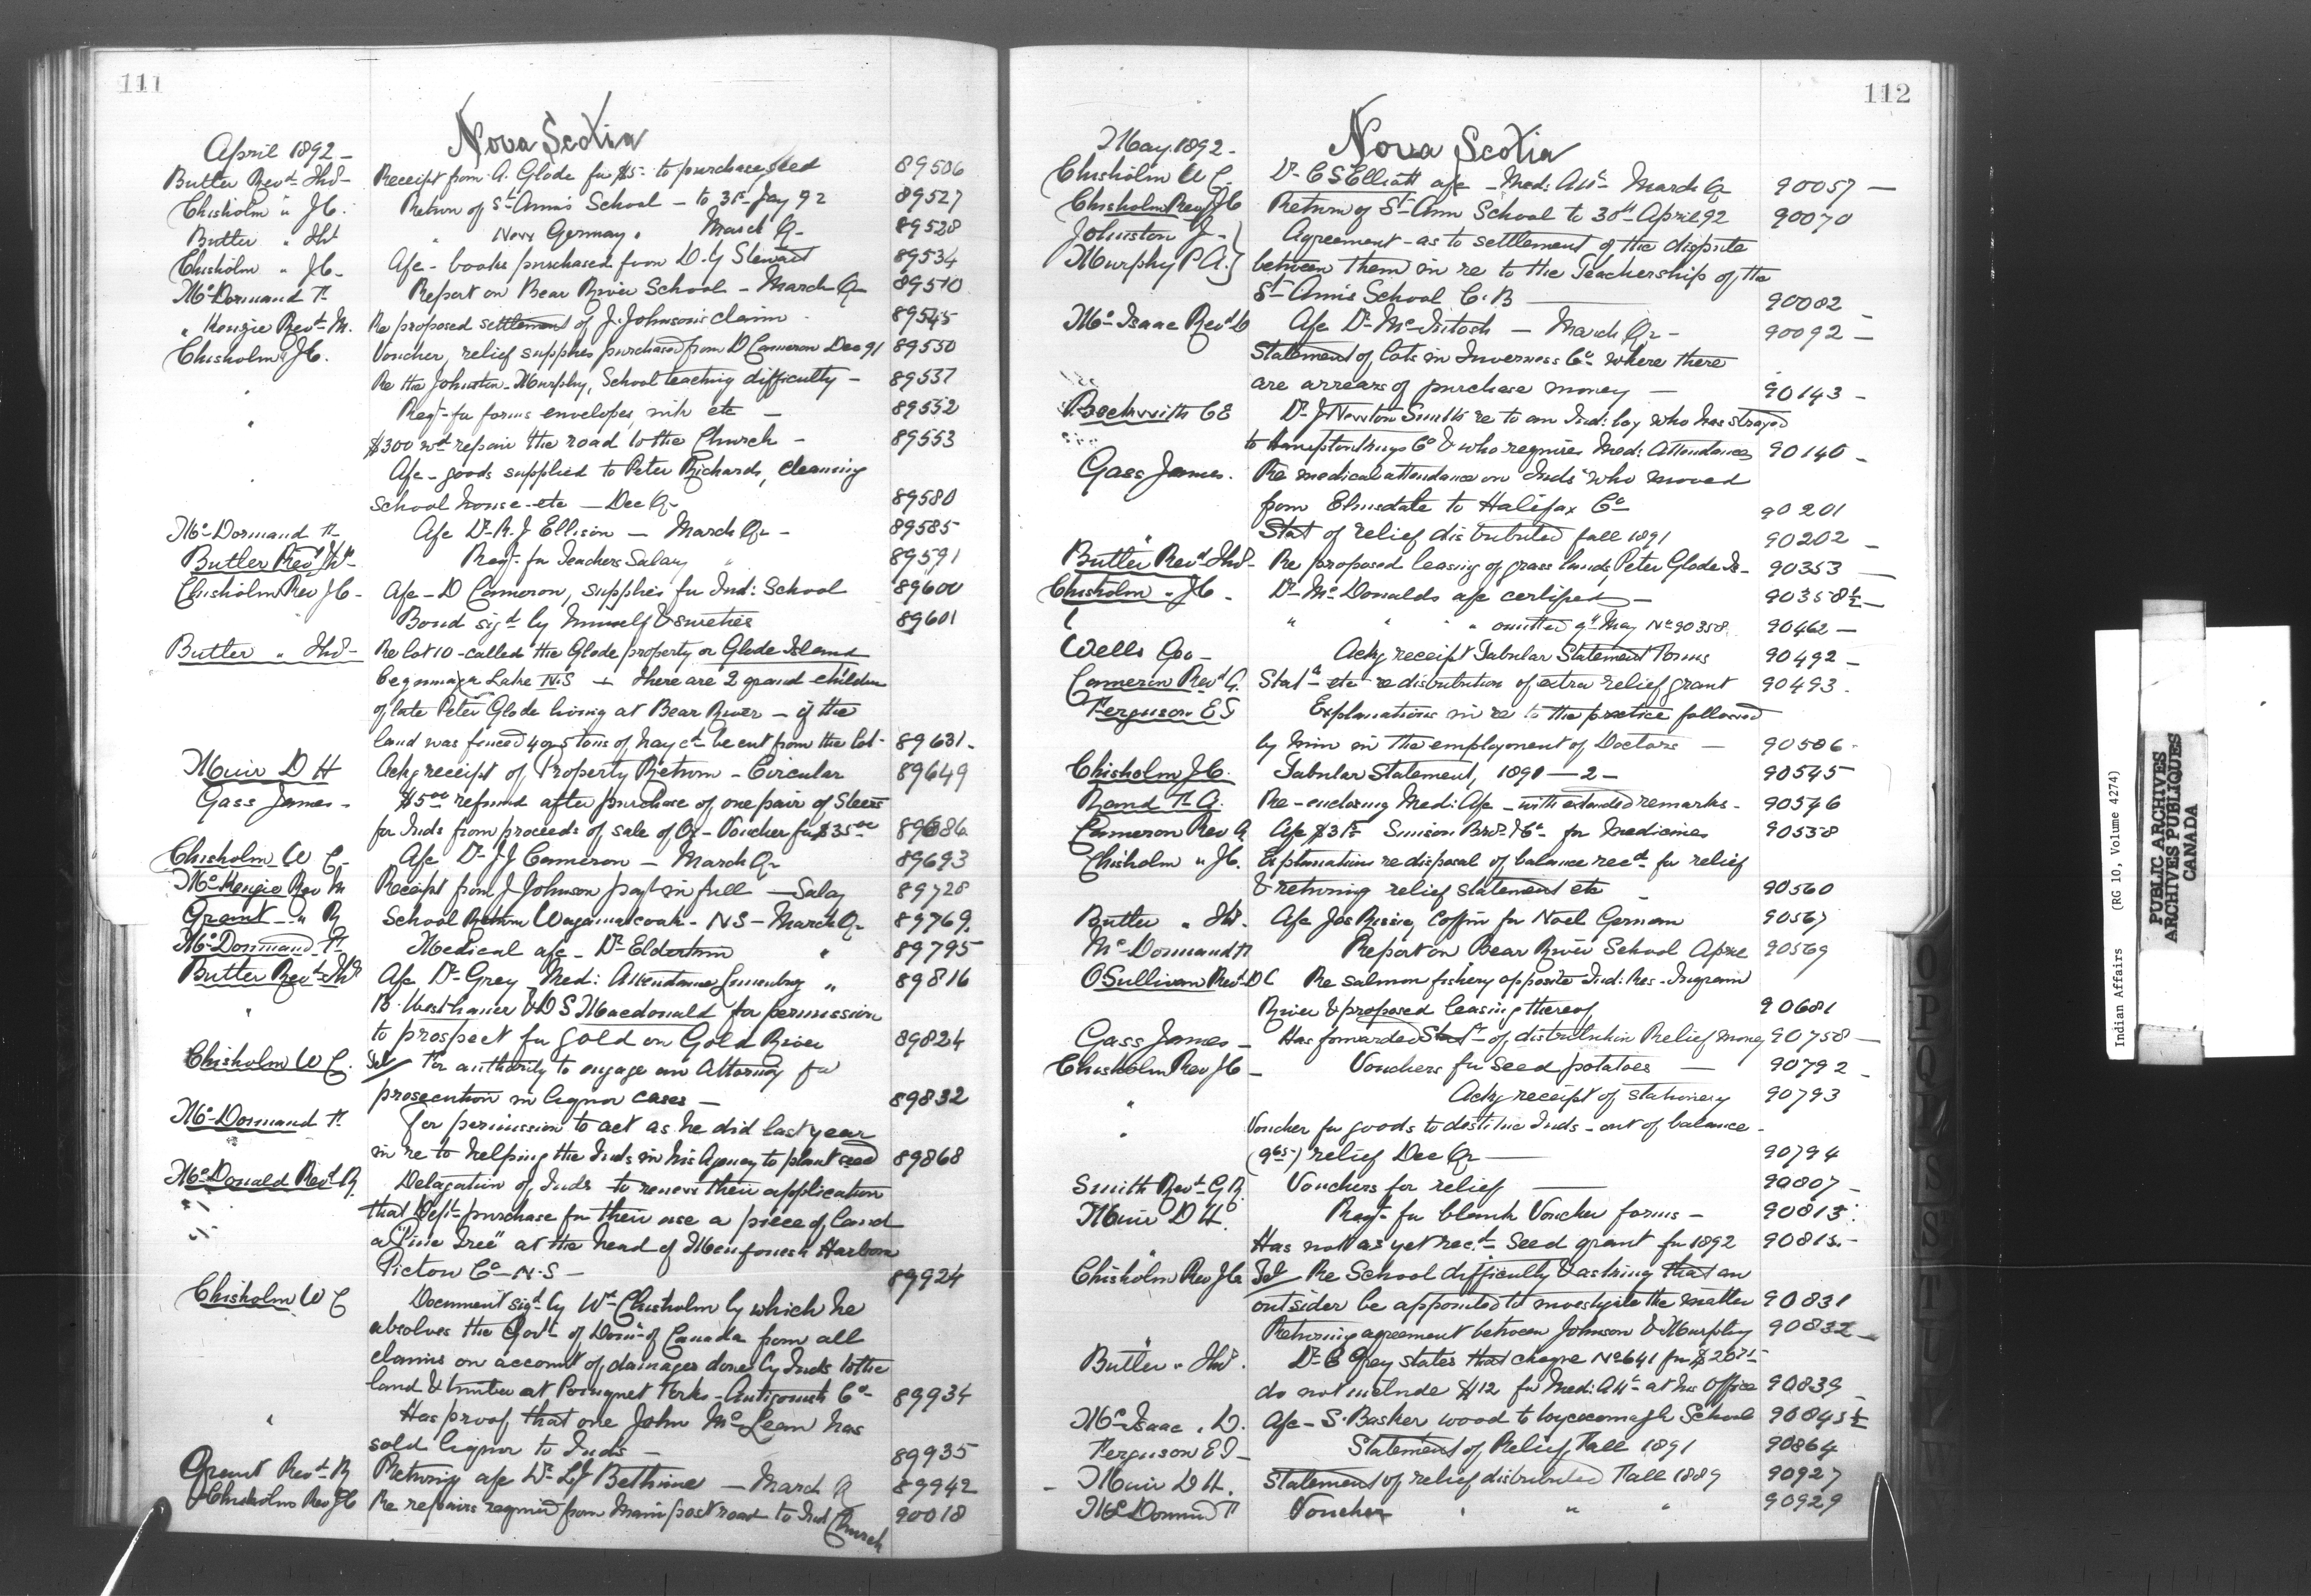 111
Nova Scotia
April 1892 -
Butler Revd Thos - Receipt from A. Glode for $5- to purchase seed 89506
Chisholm " J.C. Return of St Ann's School - to 31st Jay 92 89527
Butler " Thos " New Germany " March Qr 89528
Chisholm " J.C. - a/c - books purchased from D. Y Stewart 89534
McDormand F. Report on Bear River School - March Qr 89510
" Kenzie Revd M. Re proposed settlement of J. Johnson's claim - 89545
Chisholm " J.C. Voucher, relief supplies purchased from D Cameron Dec 91 89550
" Re the Johnston - Murphy, School teaching difficulty - 89537
" Reqt for forms envelopes, ink etc - 89552
$300 wd repair the road to the Church - 89553
" A/c - goods supplied to Peter Richards, cleaning
School house - etc - Dec Qr 89580
McDormand F. A/c Dr R. J Ellison - March Qr - 89585
Butler Revd Thos Reqt for Teachers Salary " 89591
Chisholm Rev J C - A/c - D Cameron, supplies for Ind: School 89600
Bond sigd by himself & sureties 89601
Butler " Thos - Re lot 10 - called the Glode property or Glode Island
Lake N.S - there are 2 grand children
of late Peter Glode living at Bear River - if the
land was fenced 4 or 5 tons of hay cd be cut from the lot - 89631 -
Muir D H Ackg receipt of Property Return - Circular 89649
Gass James - $5.00 refund after purchase of one pair of Steers
for Inds from proceeds of sale of Ox - Voucher for $35.00 89686
Chisholm W C - A/c Dr J J Cameron - March Qr 89693
McKenzie Rev M Receipt from J Johnson payt in full - Salary 89728
Grant - " R School Return Wagamatcook - N S - March Qr 89769.
McDormand F. Medical a/c - Dr Elderkin " 89795
Butler Revd Thos A/c Dr Grey Med: Attendance Lunenburg " 89816
" B. Westhaver & D S Macdonald for permission
to prospect for gold on Gold River 89824
Chisholm W C. Tel/ For authority to engage an Attorney for
prosecution in liquor cases - 89832
McDormand F. For permission to act as he did last year
in re to helping the Inds in his Agency to plant seed 89868
McDonald Revd R. Delegation of Inds to renew their application
that Dept purchase for their use a piece of land
a "Pine Tree" at the head of Harbour
Pictou Co - N.S - 89924
Chisholm W C Document sigd by Wm Chisholm by which he
absolves the Govt of Domn of Canada from all
claims on account of damages done by Inds to the
land & timber at Pomquet Forks - Antigonish Co - 89934
" Has proof that one John McLean has
sold liquor to Inds - 89935
Grant Revd R Returning a/c Dr Bethune - March Q 89942
Chisholm Rev J C Re repairs required from main post road to Ind Church 90018
112
Nova Scotia
May 1892 -
Chisholm W C. Dr C S Elliott a/c - Med: Attce March Qr 90057 -
Chisholm Rev J C Return of St Ann School to 30th April 92 90070
Johnston J - } Agreement - as to settlement of the dispute
Murphy P A. } between them in re to the Teachership of the
St Ann's School C. B - 90082 -
McIsaac Revd D A/c Dr McIntosh - March Qr - 90092 -
Statement of lots in Inverness Co where there
are arrears of purchase money - 90143 -
Beckwith C E Dr J Newton Smith re to an Ind: boy who has strayed
to Hampton Kings Co & who requires Med: Attendance 90140 -
Gass James. Re medical attendance on Inds who moved
from Elmsdale to Halifax Co 90201
" Stat of relief distributed fall 1891 90202 -
Butler Revd Thos - Re proposed leasing of grass lands, Peter Glode Is - 90353 -
Chisholm " J C. - Dr McDonalds a/c certified - 90358½ -
" " " omitted May No 90358. 90462 -
Wells Geo - Ackg receipt Tabular Statement Forms 90492 -
Cameron Revd A. Statt etc re distribution of extra relief grant 90493.
Ferguson E I Explanations in re to the practice followed
by him in the employment of Doctors - 90506 -
Chisholm J C. Tabular Statement, 1891 - 2 - 90545
Rand F. A. Re-enclosing Med: A/c - with extended remarks - 90546
Cameron Rev A A/c $31.75 Simson Bros & Co for medicines 90558
Chisholm " J C. Explanations re disposal of balance recd for relief
& returning relief statement etc 90560
Butler " Thos. A/c Jos coffin for Noel Germain 90567
McDormand F Report on Bear River School April 90569
O'Sullivan Revd D C Re salmon fishery opposite Ind: Res - Ingram
River & proposed leasing thereof 90681
Gass James - Has forwarded Statt of distribution Relief money 90758 -
Chisholm Rev J C - Vouchers for seed potatoes - 90792 -
" Ackg receipt of stationery 90793
" Voucher for goods to destitute Inds - out of balance -
relief Dec Qr - 90794
Smith Revd G R Vouchers for relief - 90807 -
Muir D H. Reqt for blank Voucher forms - 90813.
" Has not as yet recd seed grant for 1892 90815 -
Chisholm Rev J C Tel/ Re School difficulty & asking that an
outsider be appointed to investigate the matter 90831
" Returning agreement between Johnson & Murphy 90832 -
Butler " Thos. Dr C Grey states that cheque No 641 for
do not include $12 for Med: Attce at his Office 90839 -
McIsaac " D. A/c - S. Basker wood to Whycocomagh School 90845½
Ferguson E I - Statement of Relief Fall 1891 90864
- Muir D H. Statement of relief distributed Fall 1889 90927
McDormand F Voucher " " " 90929
Indian Affairs (RG 10, Volume 4274)
PUBLIC ARCHIVES
ARCHIVES PUBLIQUES
CANADA